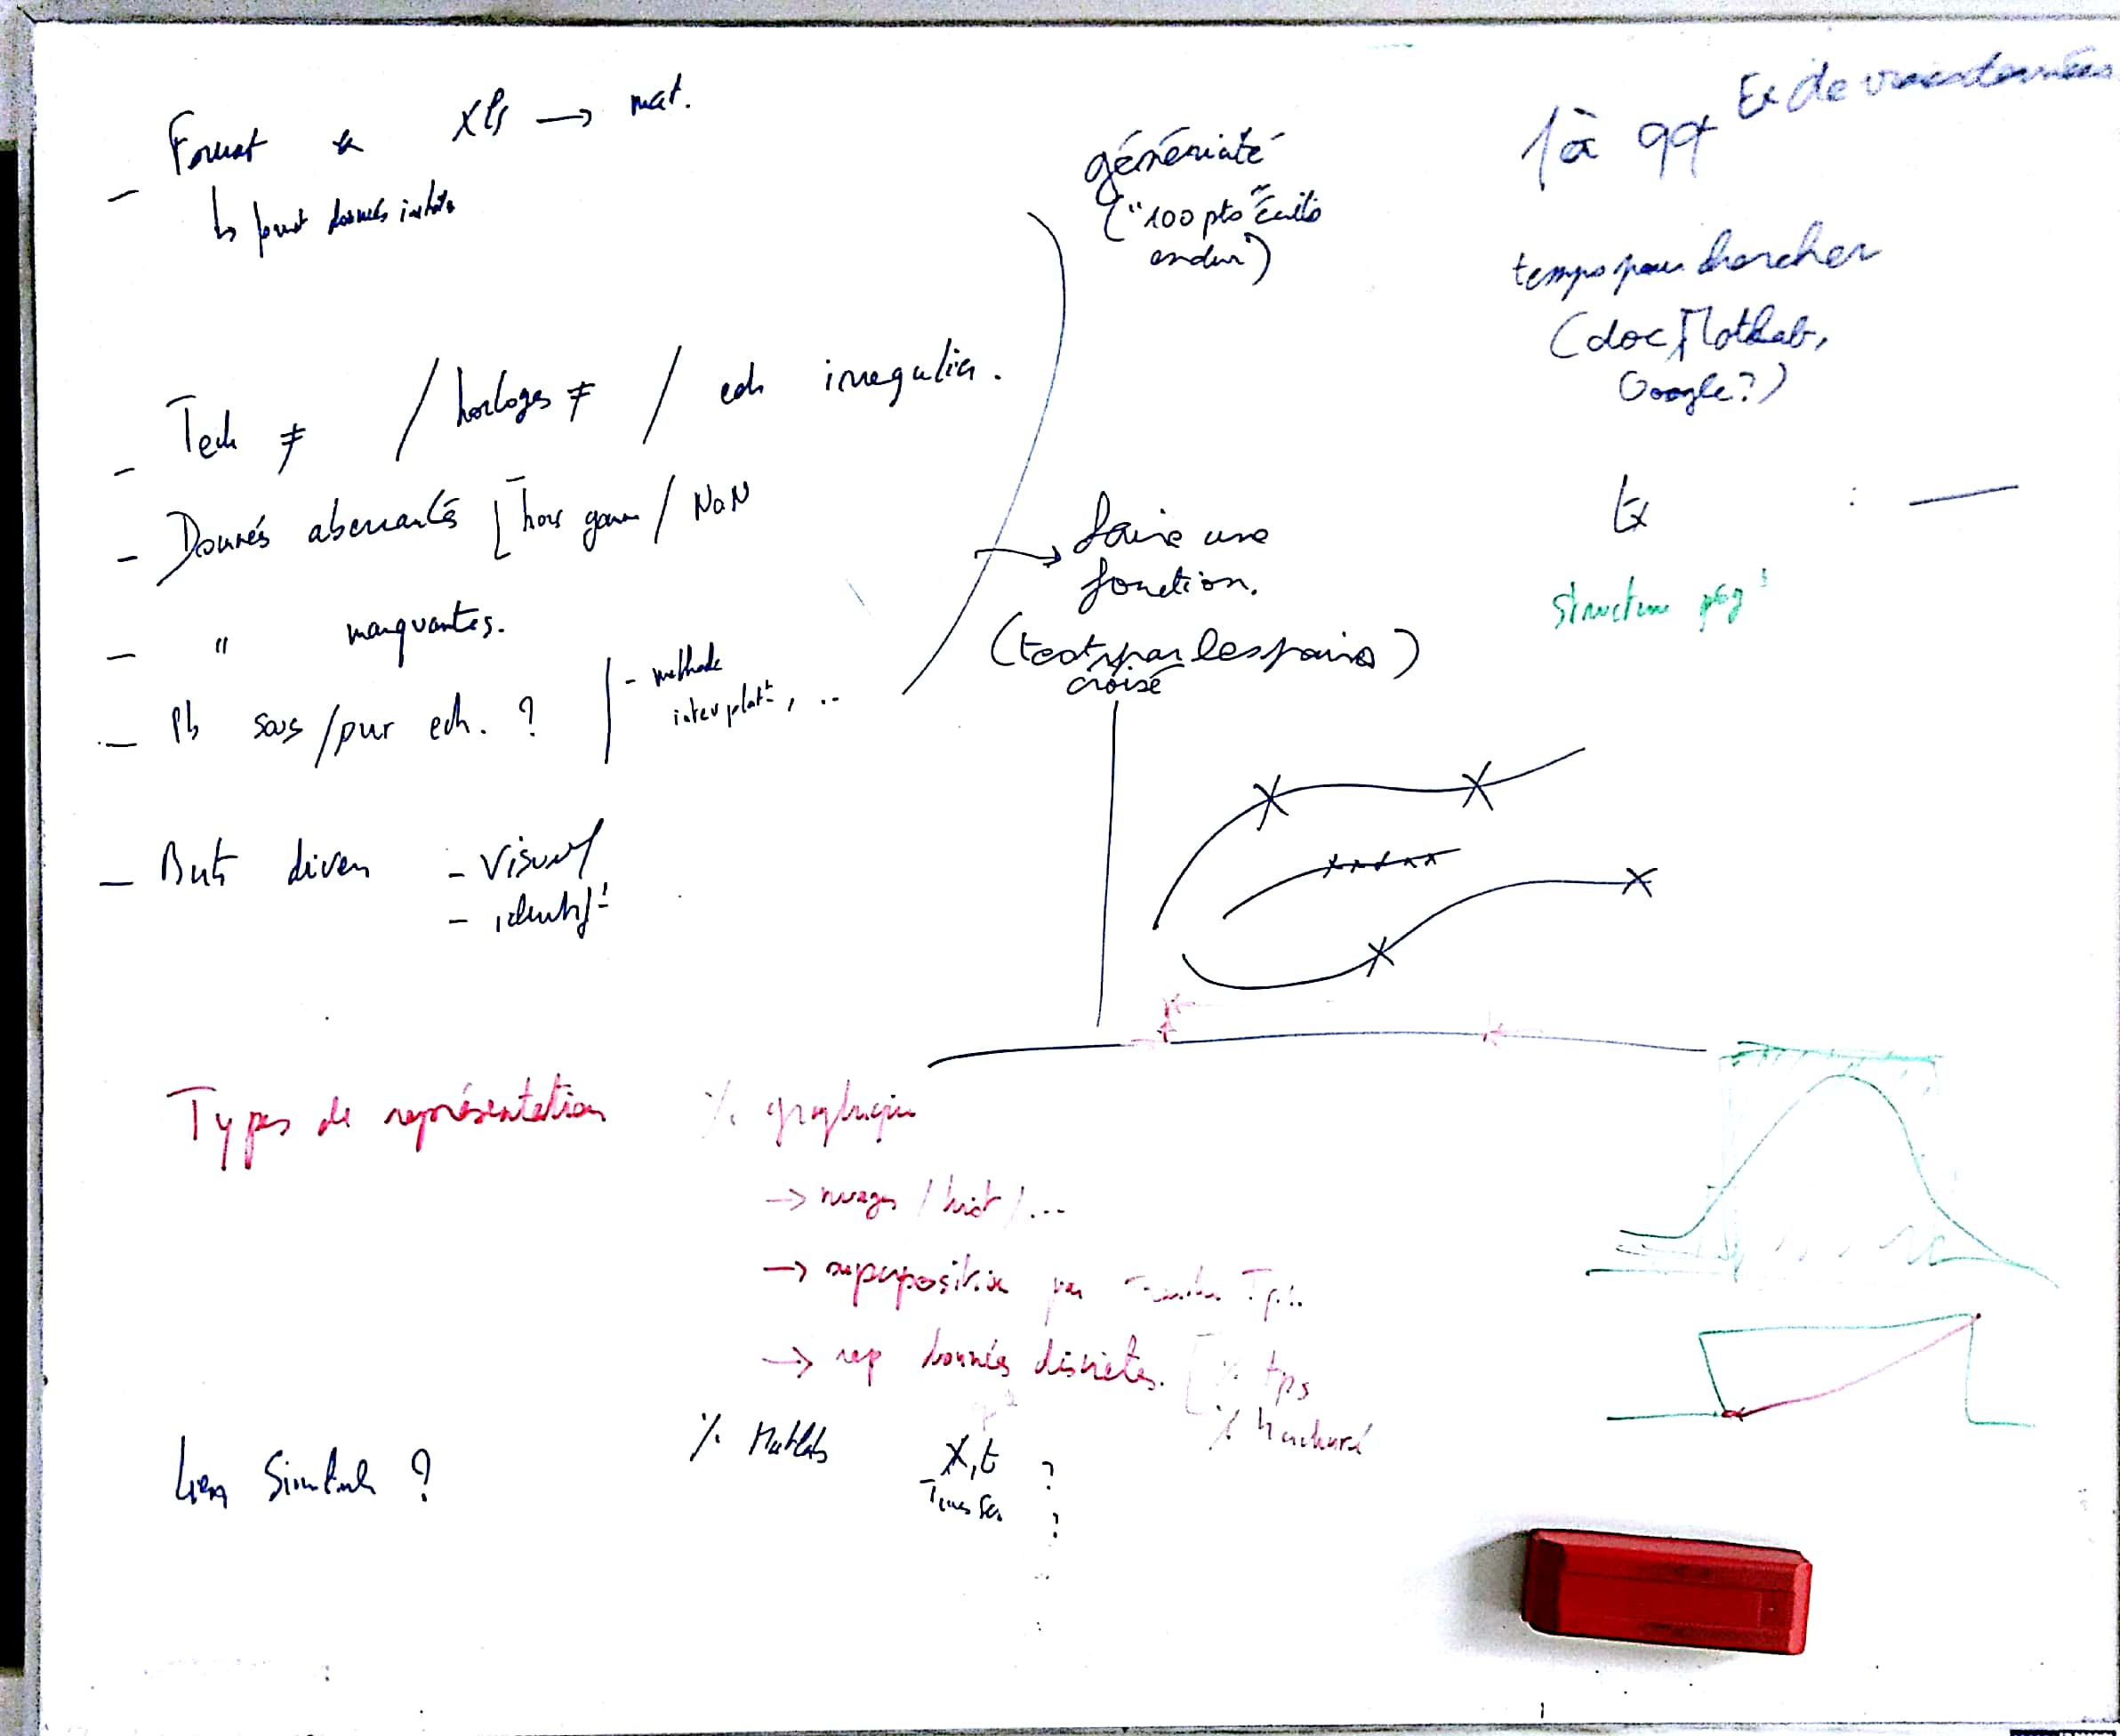 - Format XLS → mat.
↳ format données
- Tech ≠ / horloges ≠ / ech irregulier.
- Données aberrantes [ hors gamme / NaN
- " manquantes.
- Pb sous / sur ech. ? | - methode
interpolat°, ...
- Buts divers - Visuel
- identif°
généricité
("100 pts" écrits
en dur)
→ faire une
fonction.
(tests par les pairs)
croisé
1 à qq Ex de vraies données
temps pour chercher
(doc Matlab,
Google ?)
Ex : —
structure
Types de représentation % graphique
→ nuages / hist / ...
→ superposition par
→ rep données discrètes. [ % tps
% hachuré
Lien Simulink ? % Matlab X,t ?
?